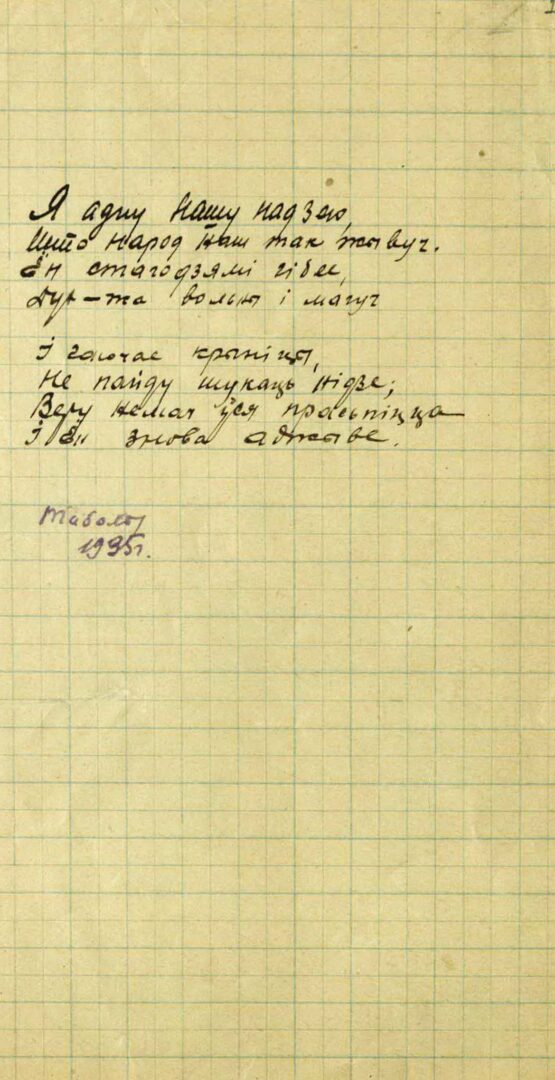 Я адну нашу надзею,
Што народ наш так жывуч.
Ён стагодзямі гібее,
Дух-жа вольны і магуч

І гаючае крыніцы,
Не пайду шукаць нідзе;
Веру немач ўся прасьпіцца
І Ён знова аджыве.

Табольск
1935г.